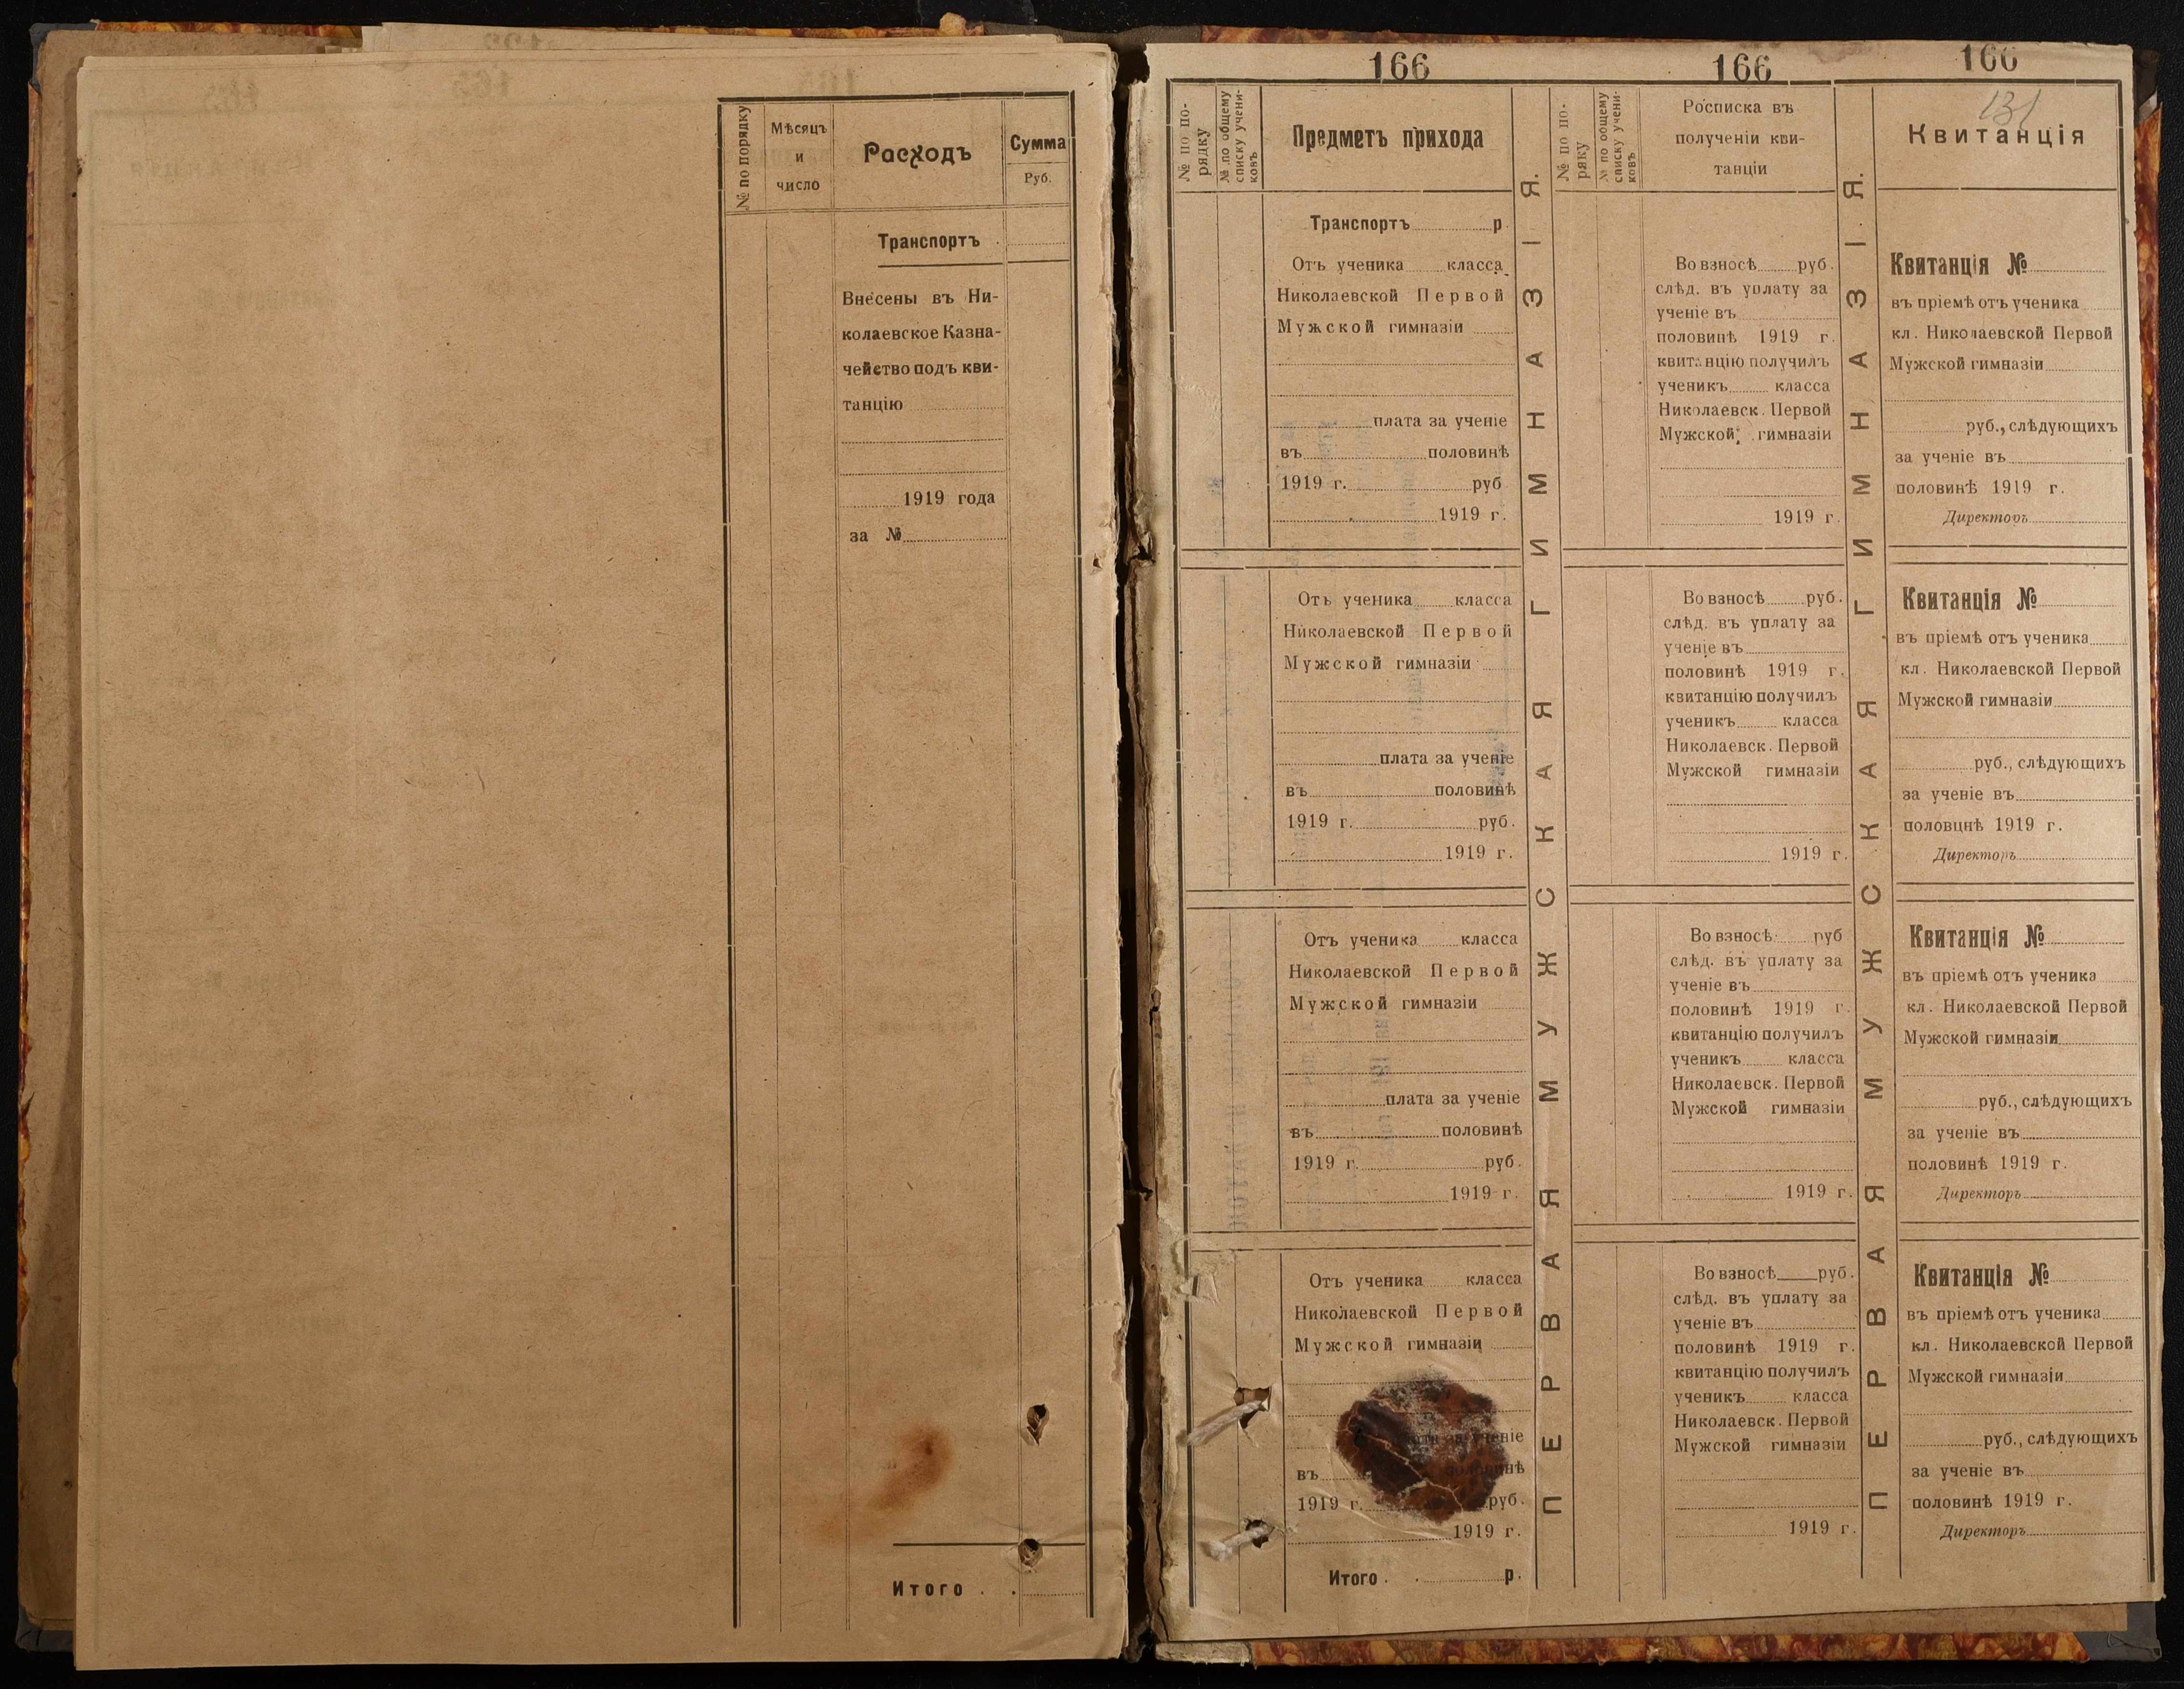 № по порядку
Мѣсяцъ
и
число
Расходъ
Сумма
Руб.
Транспортъ
Внесены въ Ни-
колаевское Казна-
чейство подъ кви-
танцію
1919 года
за №
Итого . .
166
№ по по-
рядку
№ по общему
списку учени-
ковъ
Предметъ прихода
Транспортъ р.
Отъ ученика класса
Николаевской Первой
Мужской гимназіи
плата за ученіе
въ половинѣ
1919 г. руб
1919 г.
Отъ ученика класса
Николаевской Первой
Мужской гимназіи
плата за ученіе
въ половинѣ
1919 г. руб.
1919 г.
Отъ ученика класса
Николаевской Первой
Мужской гимназіи
плата за ученіе
въ половинѣ
1919 г. руб.
1919 г.
Отъ ученика класса
Николаевской Первой
Мужской гимназіи
за ученіе
въ половинѣ
1919 г. руб.
1919 г.
Итого . . р.
ПЕРВАЯ МУЖСКАЯ ГИМНАЗІЯ.
166
№ по по-
ряку
№ по общему
списку учени-
ковъ
Росписка въ
полученіи кви-
танціи
Во взносѣ руб.
слѣд. въ уплату за
ученіе въ
половинѣ 1919 г.
квитанцію получилъ
ученикъ класса
Николаевск. Первой
Мужской гимназіи
1919 г.
Во взносѣ руб.
слѣд. въ уплату за
ученіе въ
половинѣ 1919 г.
квитанцію получилъ
ученикъ класса
Николаевск. Первой
Мужской гимназіи
1919 г.
Во взносѣ руб
слѣд. въ уплату за
ученіе въ
половинѣ 1919 г.
квитанцію получилъ
ученикъ класса
Николаевск. Первой
Мужской гимназіи
1919 г.
Во взносѣ руб.
слѣд. въ уплату за
ученіе въ
половинѣ 1919 г.
квитанцію получилъ
ученикъ класса
Николаевск. Первой
Мужской гимназіи
1919 г.
ПЕРВАЯ МУЖСКАЯ ГИМНАЗІЯ.
166
131
Квитанція
Квитанція №
въ пріемѣ отъ ученика
кл. Николаевской Первой
Мужской гимназіи
руб., слѣдующихъ
за ученіе въ
половинѣ 1919 г.
Директоръ
Квитанція №
въ пріемѣ отъ ученика
кл. Николаевской Первой
Мужской гимназіи
руб., слѣдующихъ
за ученіе въ
половинѣ 1919 г.
Директоръ
Квитанція №
въ пріемѣ отъ ученика
кл. Николаевской Первой
Мужской гимназіи
руб., слѣдующихъ
за ученіе въ
половинѣ 1919 г.
Директоръ
Квитанція №
въ пріемѣ отъ ученика
кл. Николаевской Первой
Мужской гимназіи
руб., слѣдующихъ
за ученіе въ
половинѣ 1919 г.
Директоръ